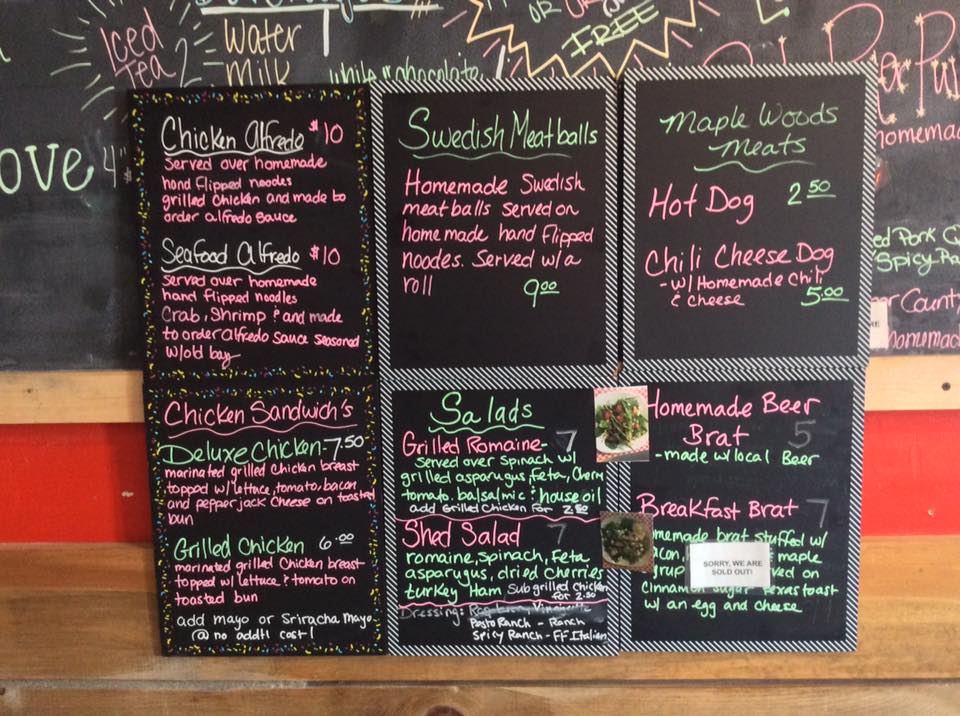 Iced
Tea 2
Water
Milk
white & chocolate
OR
OR
FREE
ove 4
homemad
ed Pork
Spicy
County,
homemad
Chicken Alfredo $10
Served over homemade
hand flipped noodes
grilled chicken and made to
order alfredo sauce
Seafood Alfredo $10
Served over homemade
hand flipped noodles
Crab, Shrimp & and made
to order alfredo sauce seasoned
w/old bay
Swedish Meatballs
Homemade Swedish
meatballs served on
homemade hand flipped
noodes. Served w/a
roll
9.00
Maple Woods
Meats
Hot Dog 2.50
Chili Cheese Dog
- w/Homemade Chili
& Cheese 5.00
Chicken Sandwich's
Deluxe Chicken - 7.50
marinated grilled chicken breast
topped w/lettuce, tomato, bacon
and pepperjack cheese on toasted
bun
Grilled Chicken 6.00
marinated grilled chicken breast
topped w/ lettuce & tomato on
toasted bun
add mayo or Sriracha mayo
@ no addt'l cost!
Salads
Grilled Romaine - 7
Served over spinach w/
grilled asparagus, feta, Cherry
tomato, balsalmic & house oil
add Grilled Chicken for 2.50
Shed Salad 7
romaine, spinach, feta
asparugus, dried cherries
turkey Ham Sub grilled chicken
for 2.50
Dressing:
Pasto Ranch - Ranch
Spicy Ranch - FF Italian
Homemade Beer
Brat 5
- made w/local Beer
Breakfast Brat 7
omemade brat stuffed w/
acon, maple
yrup rved on
cinnamon sugar texas toast
w/ an egg and cheese
SORRY, WE ARE
SOLD OUT!